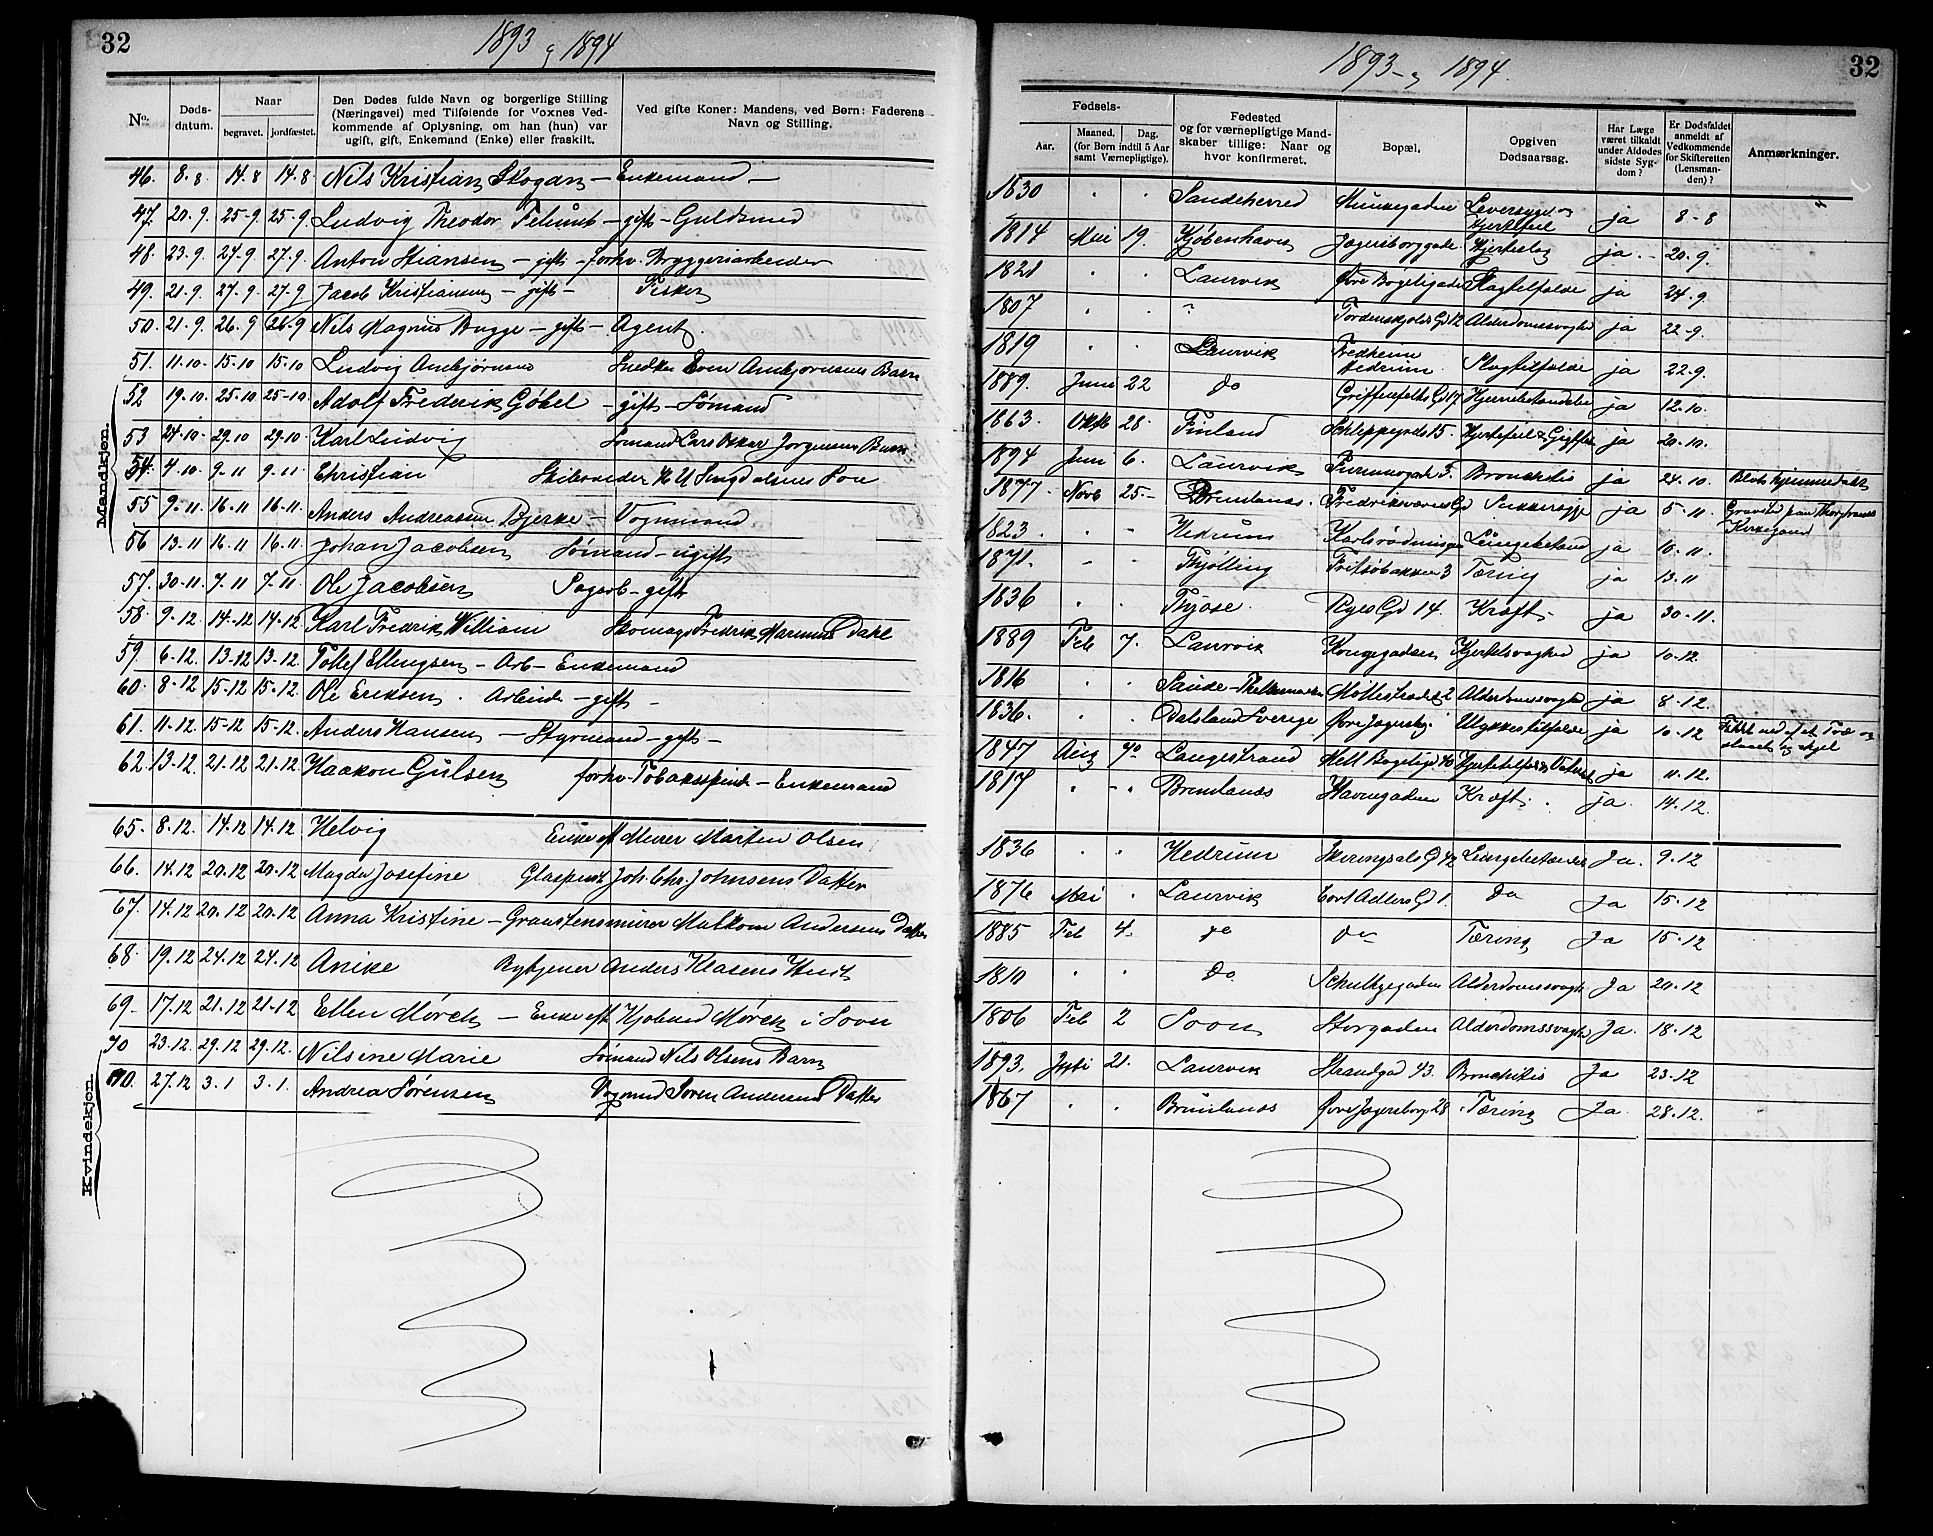 32
1893 & 1894
No.
Døds-
datum.
Naar
begravet. jordfæstet.
Den Dødes fulde Navn og borgerlige Stilling
(Næringsvei) med Tilføiende for Voxnes Ved-
kommende af Oplysning, om han (hun) var
ugift, gift, Enkemand (Enke) eller fraskilt.
Ved gifte Koner: Mandens, ved Børn: Faderens
Navn og Stilling.
46. 8.8. 14.8 14.8 Nils Kristian Skogan – Enkemand –
47. 20.9. 25-9 25-9. Ludvig Theodor – gift – Guldsmed
48. 23.9. 27.9 27.9. Anton Stiansen – gift – forhv. Bryggeriarbeider
49. 21.9. 27.9. 27.9 Jacob Kristiansen – gift – Fisker
50. 21.9. 26.9 26-9 Nils Magnus Bugge – gift – Agent.
51. 11.10. 15.10 15.10 Ludvig Ambjørnsen Snedker Even Ambjørnsens Barn
52 19.10. 25.10 25-10. Adolf Fredrik Göbel – gift – Sømand
53 24.10. 29.10 29.10 Karl Ludvig Sømand Lars Oskar Jørgensens Barn
54. 4.10. 9.11 9.11. Christian Skibsreder Søn
55 9.11 16.11 16.11 Anders Andreasen Bjerke – Vognmand
56 13.11 16.11 16.11. Johan Jacobsen Sømand – ugift
57. 30.11 7.11 7.11. Ole Jacobsen Sagarb – gift
58. 9.12. 14.12 14.12. Karl Fredrik William Skomager Fredrik Marinus Dahl
59. 6.12. 13.12 13.12. Tollef Ellingsen – Arb – Enkemand
60. 8.12 15.12 15.12. Ole Eriksen. Arbeid – gift –
61. 11.12. 15-12 15.12. Anders Hansen – Styrmand – gift –
62 13.12. 21.12 21.12. Haakon Gulsen forhv. Tobaksspind – Enkemand
65. 8.12. 14.12 14.12. Helvig Enke eft Murer Morten Olsen
66. 14.12 20.12 20.12 Magda Josefine Glaspust Joh. Chr. Johnsens Datter
67. 14.12 20.12 20.12 Anna Kristine – Graastensmurer Malkom Andersens Datter
68. 19.12 24.12 24.12 Anike Anders Klasens
69. 17.12 21.12 21.12 Ellen Mørch – Enke eft Kjøbmd Mørch i Soon
70 23.12. 29.12 29.12. Nilsine Marie Sømand Nils Olsens Barn
70. 27.12 3.1 3.1. Andrea Sørensen Vogmd Søren Andersens Datter
Mandkjøn.
Kvindekjøn.
1893 & 1894.
32
Fødsels-
Aar.
Maaned. Dag.
(for Børn indtil 5 Aar
samt Værnepligtige).
Fødested
og for værnepligtige Mand-
skaber tillige: Naar og
hvor konfirmeret.
Bopæl.
Opgiven
Dødsaarsag.
Har Læge
været tilkaldt
under Afdødes
sidste Syg-
dom?
Er Dødsfaldet
anmeldt af
Vedkommende
for Skifteretten
(Lensman-
den)?
Anmærkninger.
1830 Sandeherred Munkegaden Leversygd og Hjertefeil ja 8-8
1814 Mai 19. Kjøbenhavn Jegersborggade Hjerteslag ja 20.9.
1821 Laurvik Øvre Bøgeligade Slagtilfælde ja 24.9.
1807 Tordenskjolds Gd 12 Alderdomssvaghed ja 22-9.
1819 Laurvik Fredheim Hedrum Slagtilfælde ja 22.9.
1889. Juni 22 do Griffenfelds Gd 17 Hjernebetændelse ja 12.10.
1863. Oktb 28. Finland 15. Hjertefeil & Gigtfeber ja 20.10.
1894 Juni 6. Laurvik 3. Bronchitis ja 24.10. Blot hjemmedøbt
1877. Novb 25. Brunlanes. Fredriksværns Gd Sukkersyge ja 5.11. Gravsted paa Kirkegaard
1823. Hedrum Lungebetænd ja 10.11.
1871. Thjølling Fritsøbakken 3 Tæring ja 13.11
1836 Thjose. Gd 14. Kræft ja 30.11.
1889 Feb 7. Laurvik Kongegaden Hjertesvaghed ja 10.12.
1816 Saude – Thelemarken 2 Alderdomssvagh ja 8.12.
1836. Dalsland Sverige Øvre Jegersbg. Ulykkestilfælde ja 10.12
1847 Aug Langestrand Mell Bøgeligd ja 11.12.
1817 Brunlanes Havnegaden Kræft. ja. 14.12.
1836 Hedrum Skiringsals Gd 42 Lungebetændelse Ja. 9.12
1876 Mai Laurvik Cort Adlers Gd 1. Do Ja 15.12
1885 Feb 4. do do Tæring Ja 15.12
1810 do Schultzegaden Alderdomssvagh Ja 20.12
1806 Feb 2 Soon Storgaden Alderdomssvagh Ja. 18.12
1893, 21. Laurvik Strandgd 43. Bronchitis Ja 23.12
1867 Brunlanes Øvre Jegersborg 28 Tæring Ja 28.12.